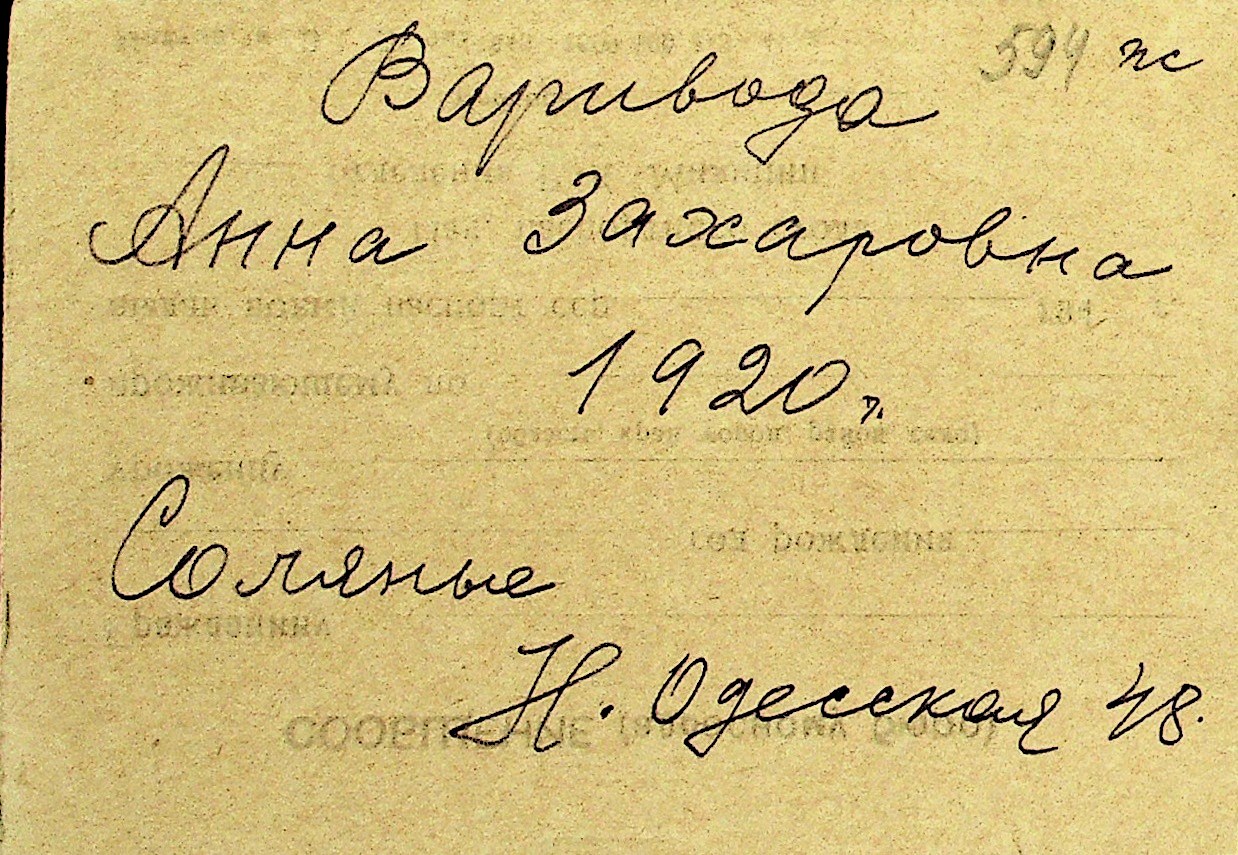 594 пс
Варивода
Анна Захаровна
1920 г.
Соляные
Н. Одесская 48.